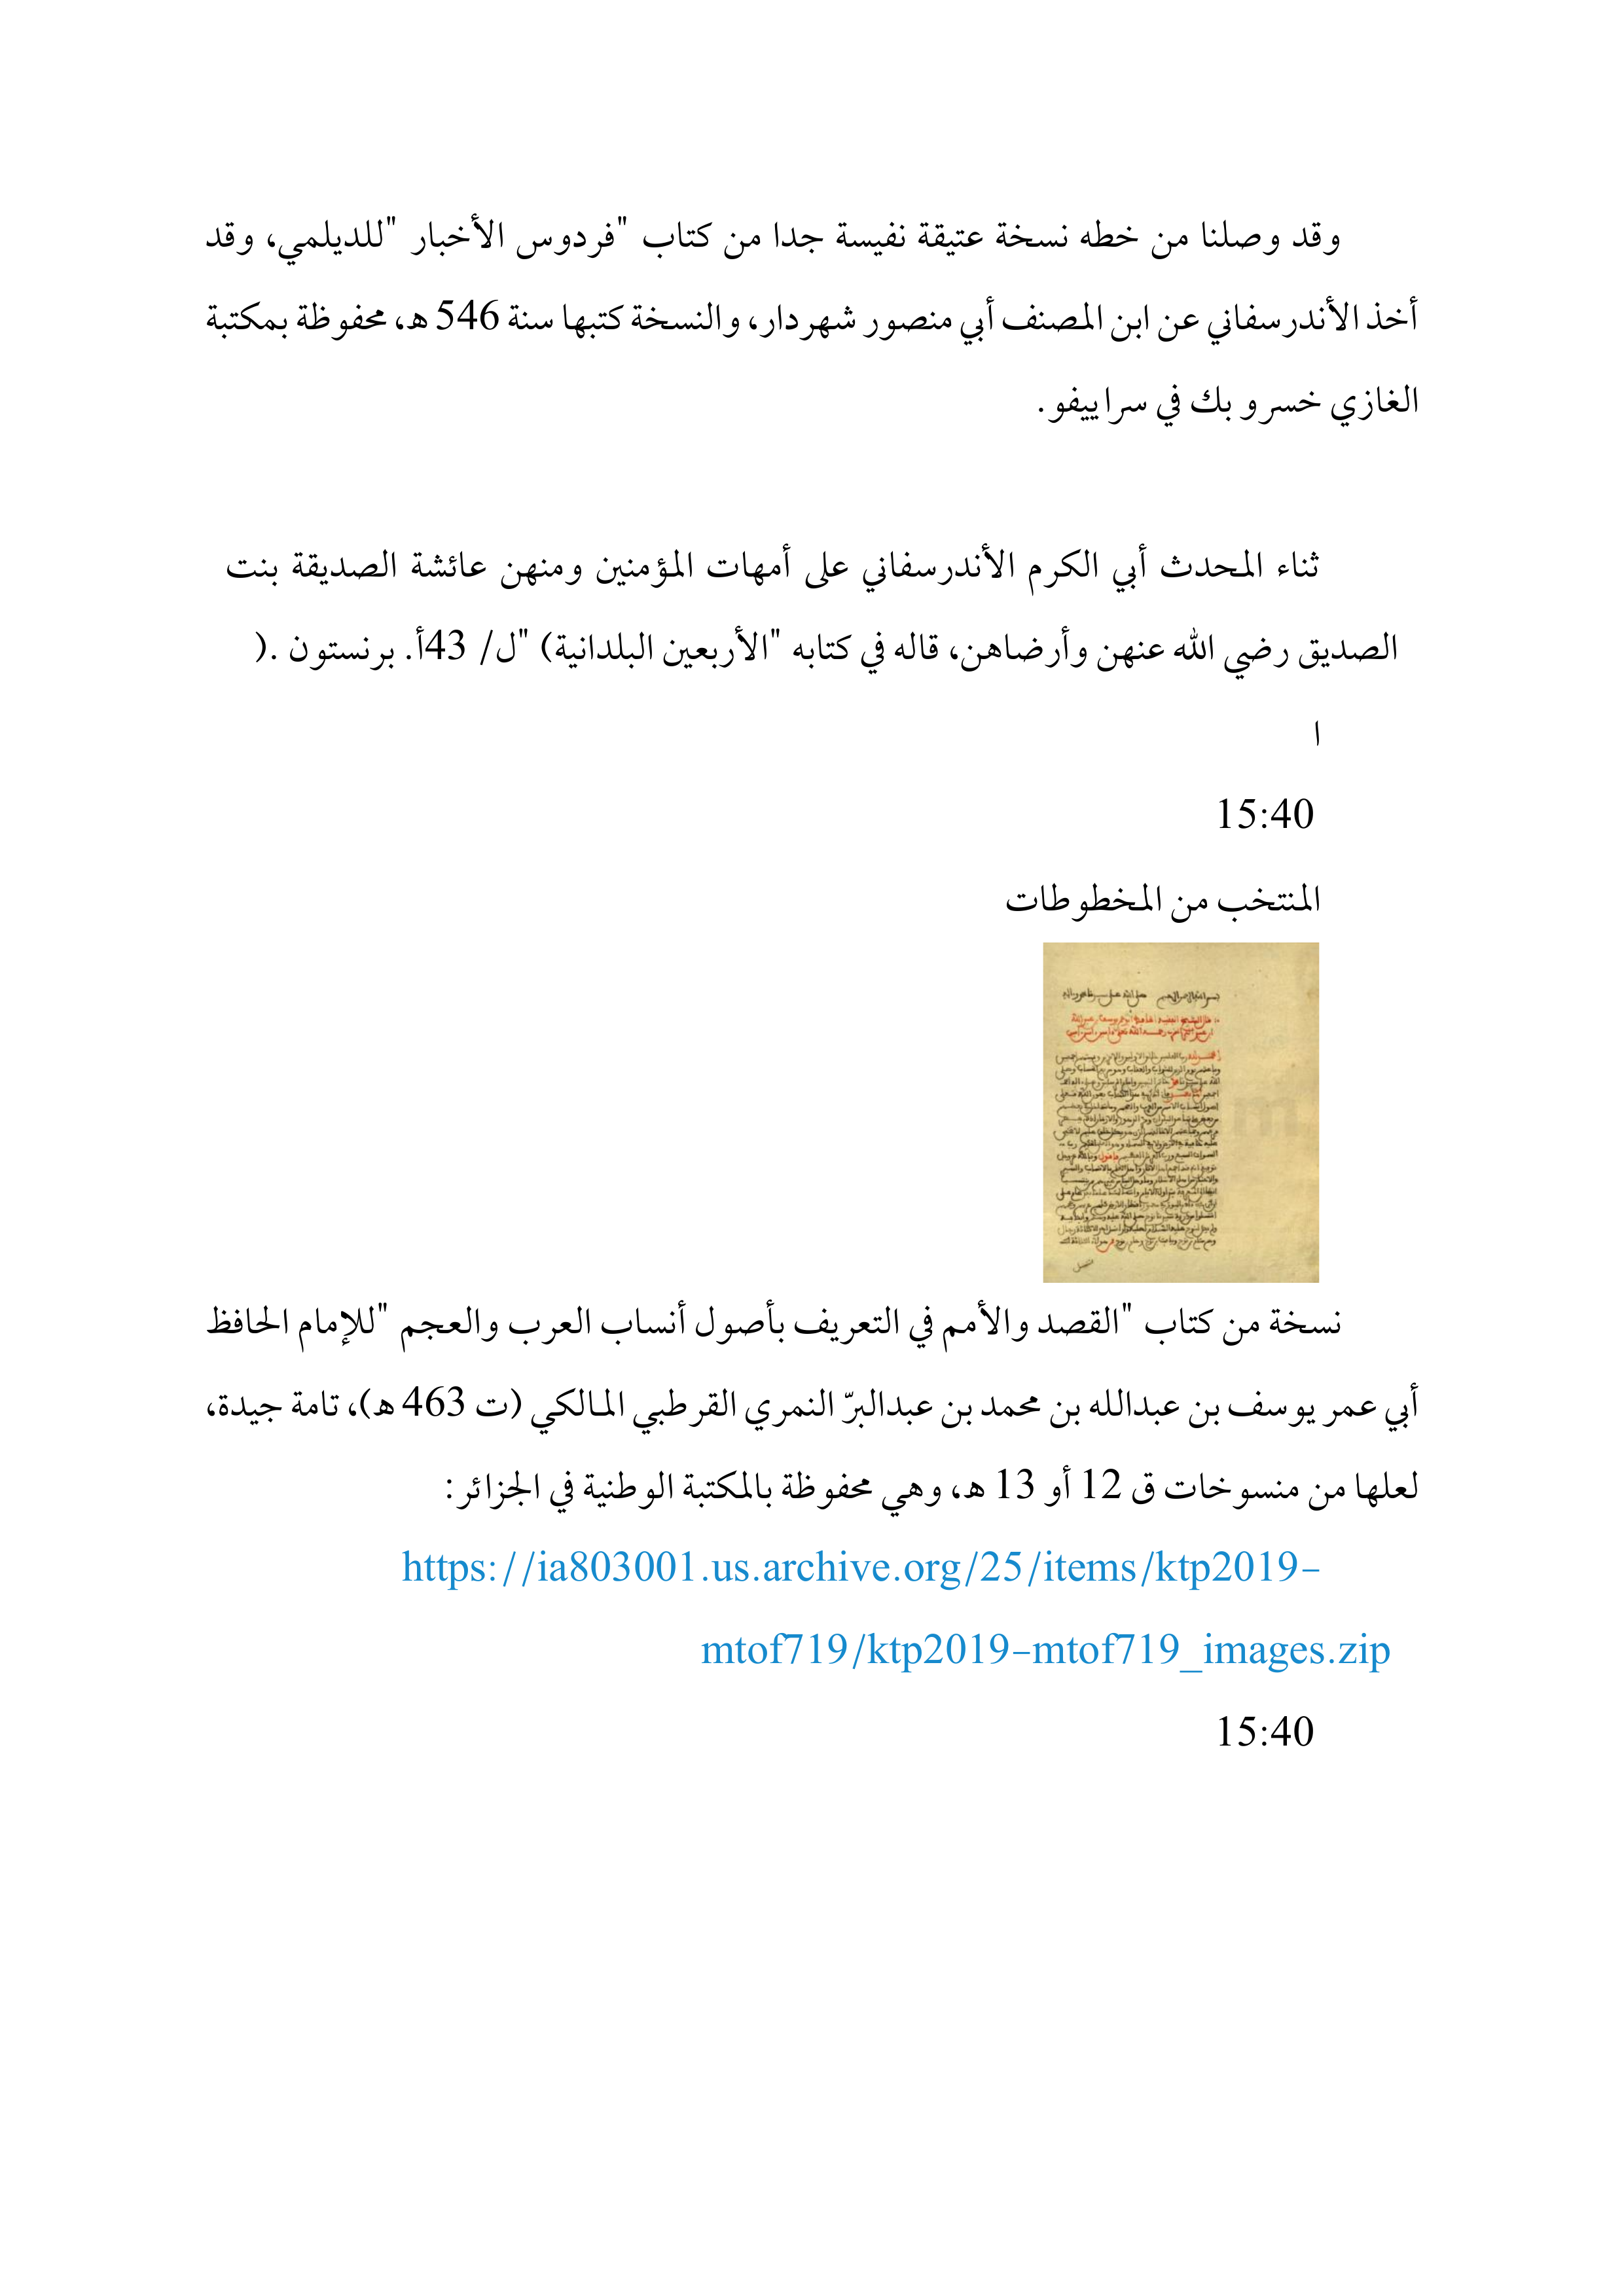 وقد وصلنا من خطه نسخة عتيقة نفيسة جدا من كتاب "فردوس الأخبار "للديلمي، وقد
أخذ الأندرسفاني عن ابن المصنف أبي منصور شهردار، والنسخة كتبها سنة 546 هـ، محفوظة بمكتبة
الغازي خسرو بك في سراييفو.
ثناء المحدث أبي الكرم الأندرسفاني على أمهات المؤمنين ومنهن عائشة الصديقة بنت
الصديق رضي الله عنهن وأرضاهن، قاله في كتابه "الأربعين البلدانية) "ل/ 43أ. برنستون .(
ا
15:40
المنتخب من المخطوطات
نسخة من كتاب "القصد والأمم في التعريف بأصول أنساب العرب والعجم "للإمام الحافظ
أبي عمر يوسف بن عبدالله بن محمد بن عبدالبرّ النمري القرطبي المالكي (ت 463 هـ)، تامة جيدة،
لعلها من منسوخات ق 12 أو 13 هـ، وهي محفوظة بالمكتبة الوطنية في الجزائر:
https://ia803001.us.archive.org/25/items/ktp2019-
mtof719/ktp2019-mtof719_images.zip
15:40